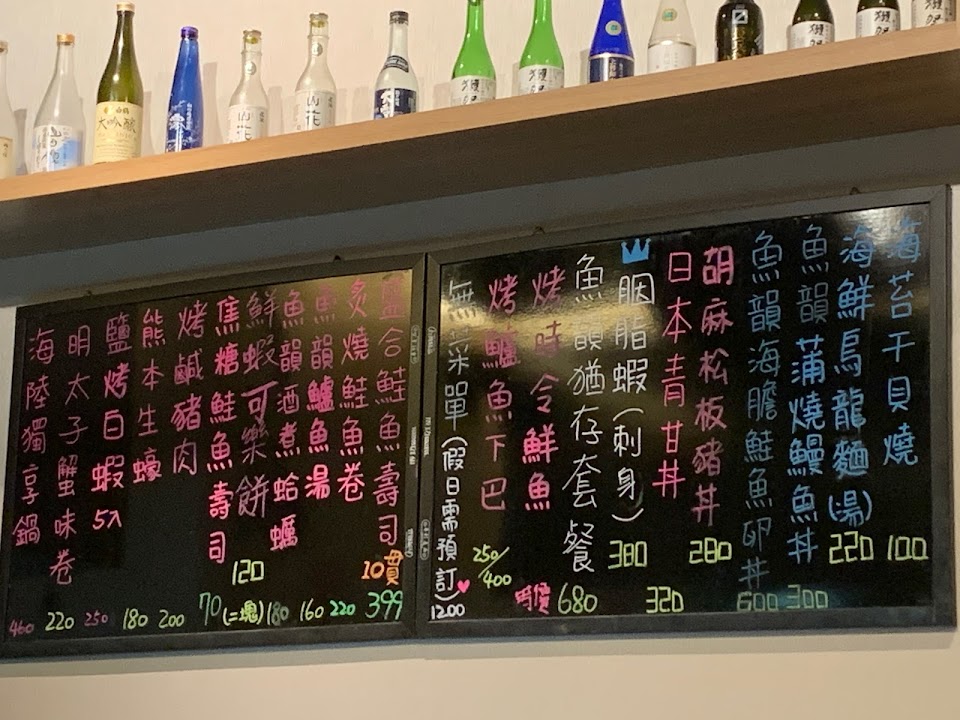 海苔干貝燒
100
海鮮烏龍麵(湯)
220
魚韻蒲燒鰻魚丼
300
魚韻海膽鮭魚卵丼
600
胡麻松板豬丼
280
日本青甘丼
320
胭脂蝦(刺身)
380
魚韻猶存套餐
680
烤時令鮮魚
時價
烤鱸魚下巴
250/400
無菜單(假日需預訂)
1200
盒鮭魚壽司
10貫
399
炙燒鮭魚卷
220
魚韻鱸魚湯
160
魚韻酒煮蛤蠣
180
鮮蝦可樂餅
120
焦糖鮭魚壽司
70(二塊)
烤鹹豬肉
200
熊本生蠔
180
鹽烤白蝦5入
250
明太子蟹味卷
220
海陸獨享鍋
460
大吟釀